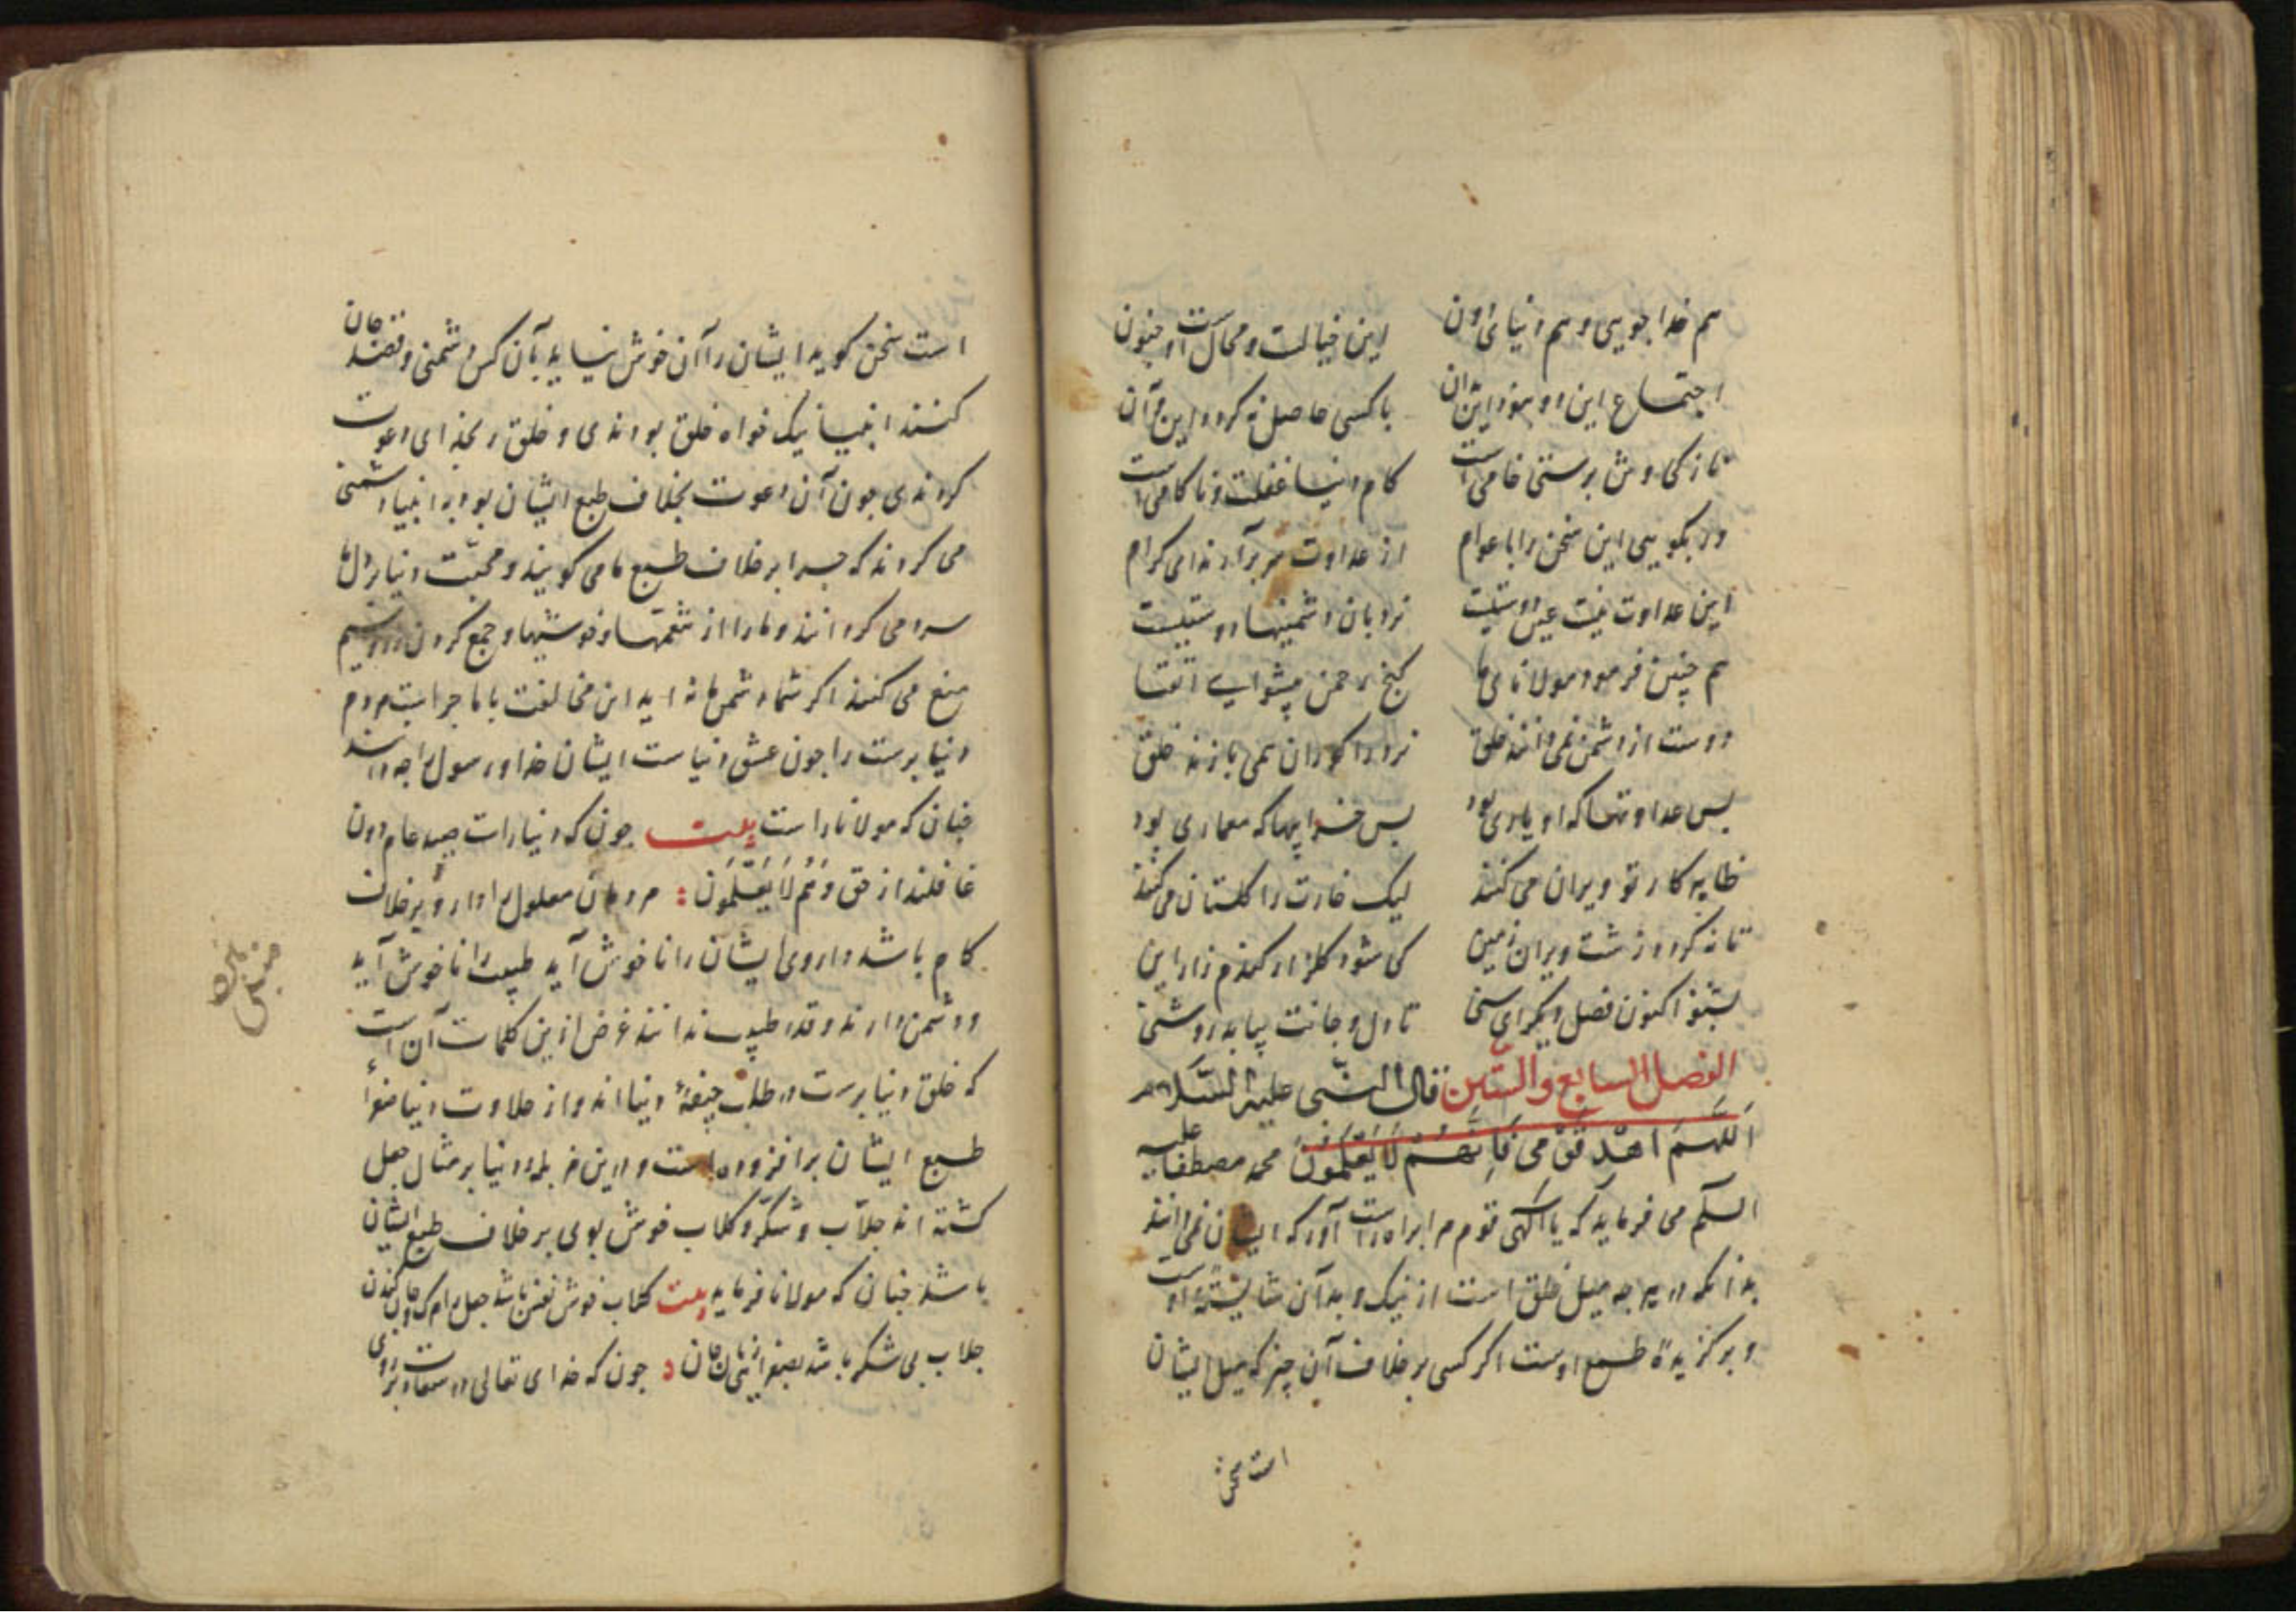 هم خدا جویی و هم دنیای دون این خیالست و محالست و جنون
اجتماع این دو نبود این زمان با کسی حاصل نکردد این و آن
کام دنیا غفلت و ناکامی است
ور بکویی این سخن را با عوام از عداوت سر برآرندای کرام
این عداوت نیست عین دوستیست نردبان دشمنیها دوستیست
هم چنین فرمود مولانای ما کنج رحمن پیشوای اتقیا
دوست از دشمن نمی دانند خلق نرد را کوران همی بازند خلق
بس عداوتها که او یاری بود بس خرابیها که معماری بود
ظاهر کار تو ویران می کنند لیک خارت را کلستان می کنند
تا نه کردد زشت ویران زمین کی شود کلزار و کندم زار این
بشنو اکنون فصل دیکر ای سنی تا دل و جانت بیابد روشنی
الفصل السابع والستین قال النبی علیه السلام
اللهم اهد قومی فانهم لا یعلمون محمد مصطفا علیه
السلم می فرماید که یا الهی قوم مرا براه راست آور که ایشان نمی دانند
بدانکه در هر چه میل خلق است از نیک و بد آن شایسته اوست
و برکزیدهٔ طبع اوست اکر کسی برخلاف آن چیز که میل ایشان
است سخن
است سخن کوید ایشان را آن خوش نیاید بآن کس دشمنی و قصد جان
کنند انبیا نیک خواه خلق بودندی و خلق بخدای دعوت
کردندی جون آن دعوت بخلاف طبع ایشان بود به انبیا دشمنی
می کردند که جرا برخلاف طبع ما می کویند و محبت دنیا بر دل ما
سرد می کردانند و ما را از نعمتها و خوشیها و جمع کردن زر و سیم
منع می کنند اکر شما دشمن ما نه اید این مخالفت با ما جراست مردم
دنیا برست را جون عشق دنیاست ایشان خدا و رسول را جه دانند
جنان که مولانا راست بیت جون که دنیا راست صید عام دون
غافلند از حق و هم لا یعقلون مردمان معلول را دارو برخلاف
کام باشد داروی ایشان را ناخوش آید طبیب را ناخوش آید
و دشمن دارند و قدر طبیب ندانند غرض ازین کلمات آن است
که خلق دنیا برست در طلب جیفهٔ دنیا اند و از حلاوت دنیا
طبع ایشان برافزوده است و درین مزبله دنیا بر مثال جعل
کشته اند جلاب و شکر و کلاب خوش بوی برخلاف طبع ایشان
باشد جنان که مولانا فرماید بیت کلاب خوش نفس باشد جعل را مرک و جان کندن
جلاب بی شکر باشد بصفرا زیان جان جون که خدای تعالی در